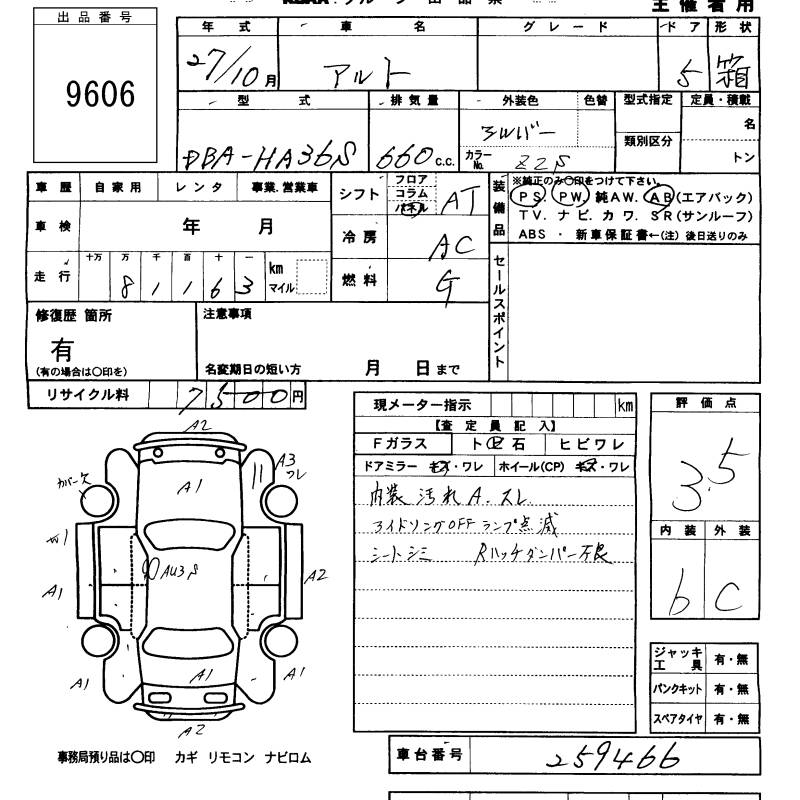 主催者用
出品番号
9606
年式 車名 グレード ドア 形状
27/10月 アルト 5 箱
型式 排気量 外装色 色替 型式指定 定員・積載
DBA-HA36S 660 c.c. シルバー 類別区分 名
カラーNo. Z2S トン
車歴 自家用 レンタ 事業.営業車
車検 年 月
走行 十万 万 千 百 十 一
8 1 1 6 3 km マイル
シフト フロア コラム パネル AT
冷房 AC
燃料 G
装備品 ※純正のみ〇印をつけて下さい。
PS. PW. 純AW. AB(エアバック)
TV. ナビ. カワ. SR(サンルーフ)
ABS ・ 新車保証書←(注)後日送りのみ
セールスポイント
修復歴 箇所
有
(有の場合は〇印を)
注意事項
名変期日の短い方 月 日まで
リサイクル料 7500円
現メーター指示 km
【査定員記入】
Fガラス ト ビ 石 ヒビワレ
ドアミラー キズ・ワレ ホイール(CP) キズ・ワレ
内装 汚れ A.スレ
アイドリングOFFランプ点滅
シートシミ Rハッチダンパー不良
評価点
3.5
内装 外装
b C
ジャッキ工具 有・無
パンクキット 有・無
スペアタイヤ 有・無
A2
A3
ワレ
カバー欠
A1
A1
AU3S
A2
A1
A1
A1
A1
A2
事務局預り品は〇印 カギ リモコン ナビロム
車台番号 259466